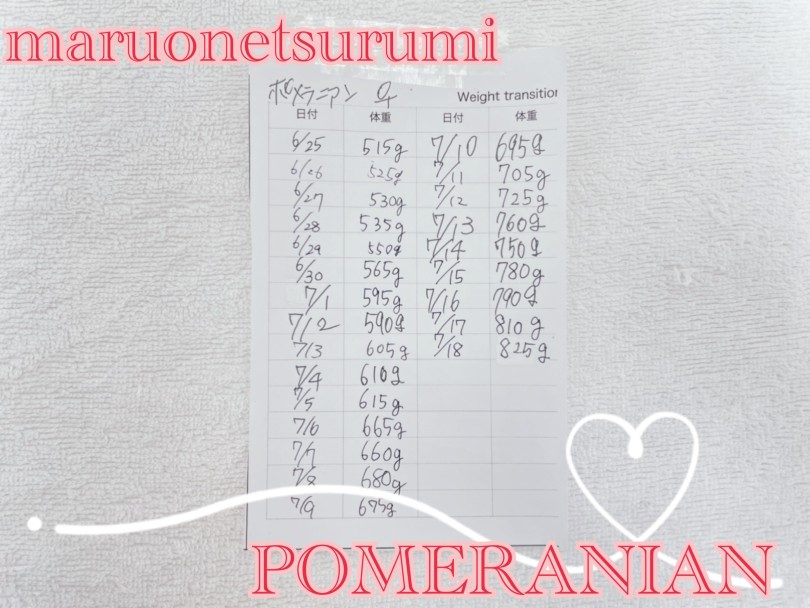 maruonetsurumi
ポメラニアン ♀
Weight transition
日付 体重 日付 体重
6/25 515g 7/10 695g
6/26 525g 7/11 705g
6/27 530g 7/12 725g
6/28 535g 7/13 760g
6/29 550g 7/14 750g
6/30 565g 7/15 780g
7/1 595g 7/16 790g
7/2 590g 7/17 810g
7/3 605g 7/18 825g
7/4 610g
7/5 615g
7/6 665g
7/7 660g
7/8 680g
7/9 675g
POMERANIAN